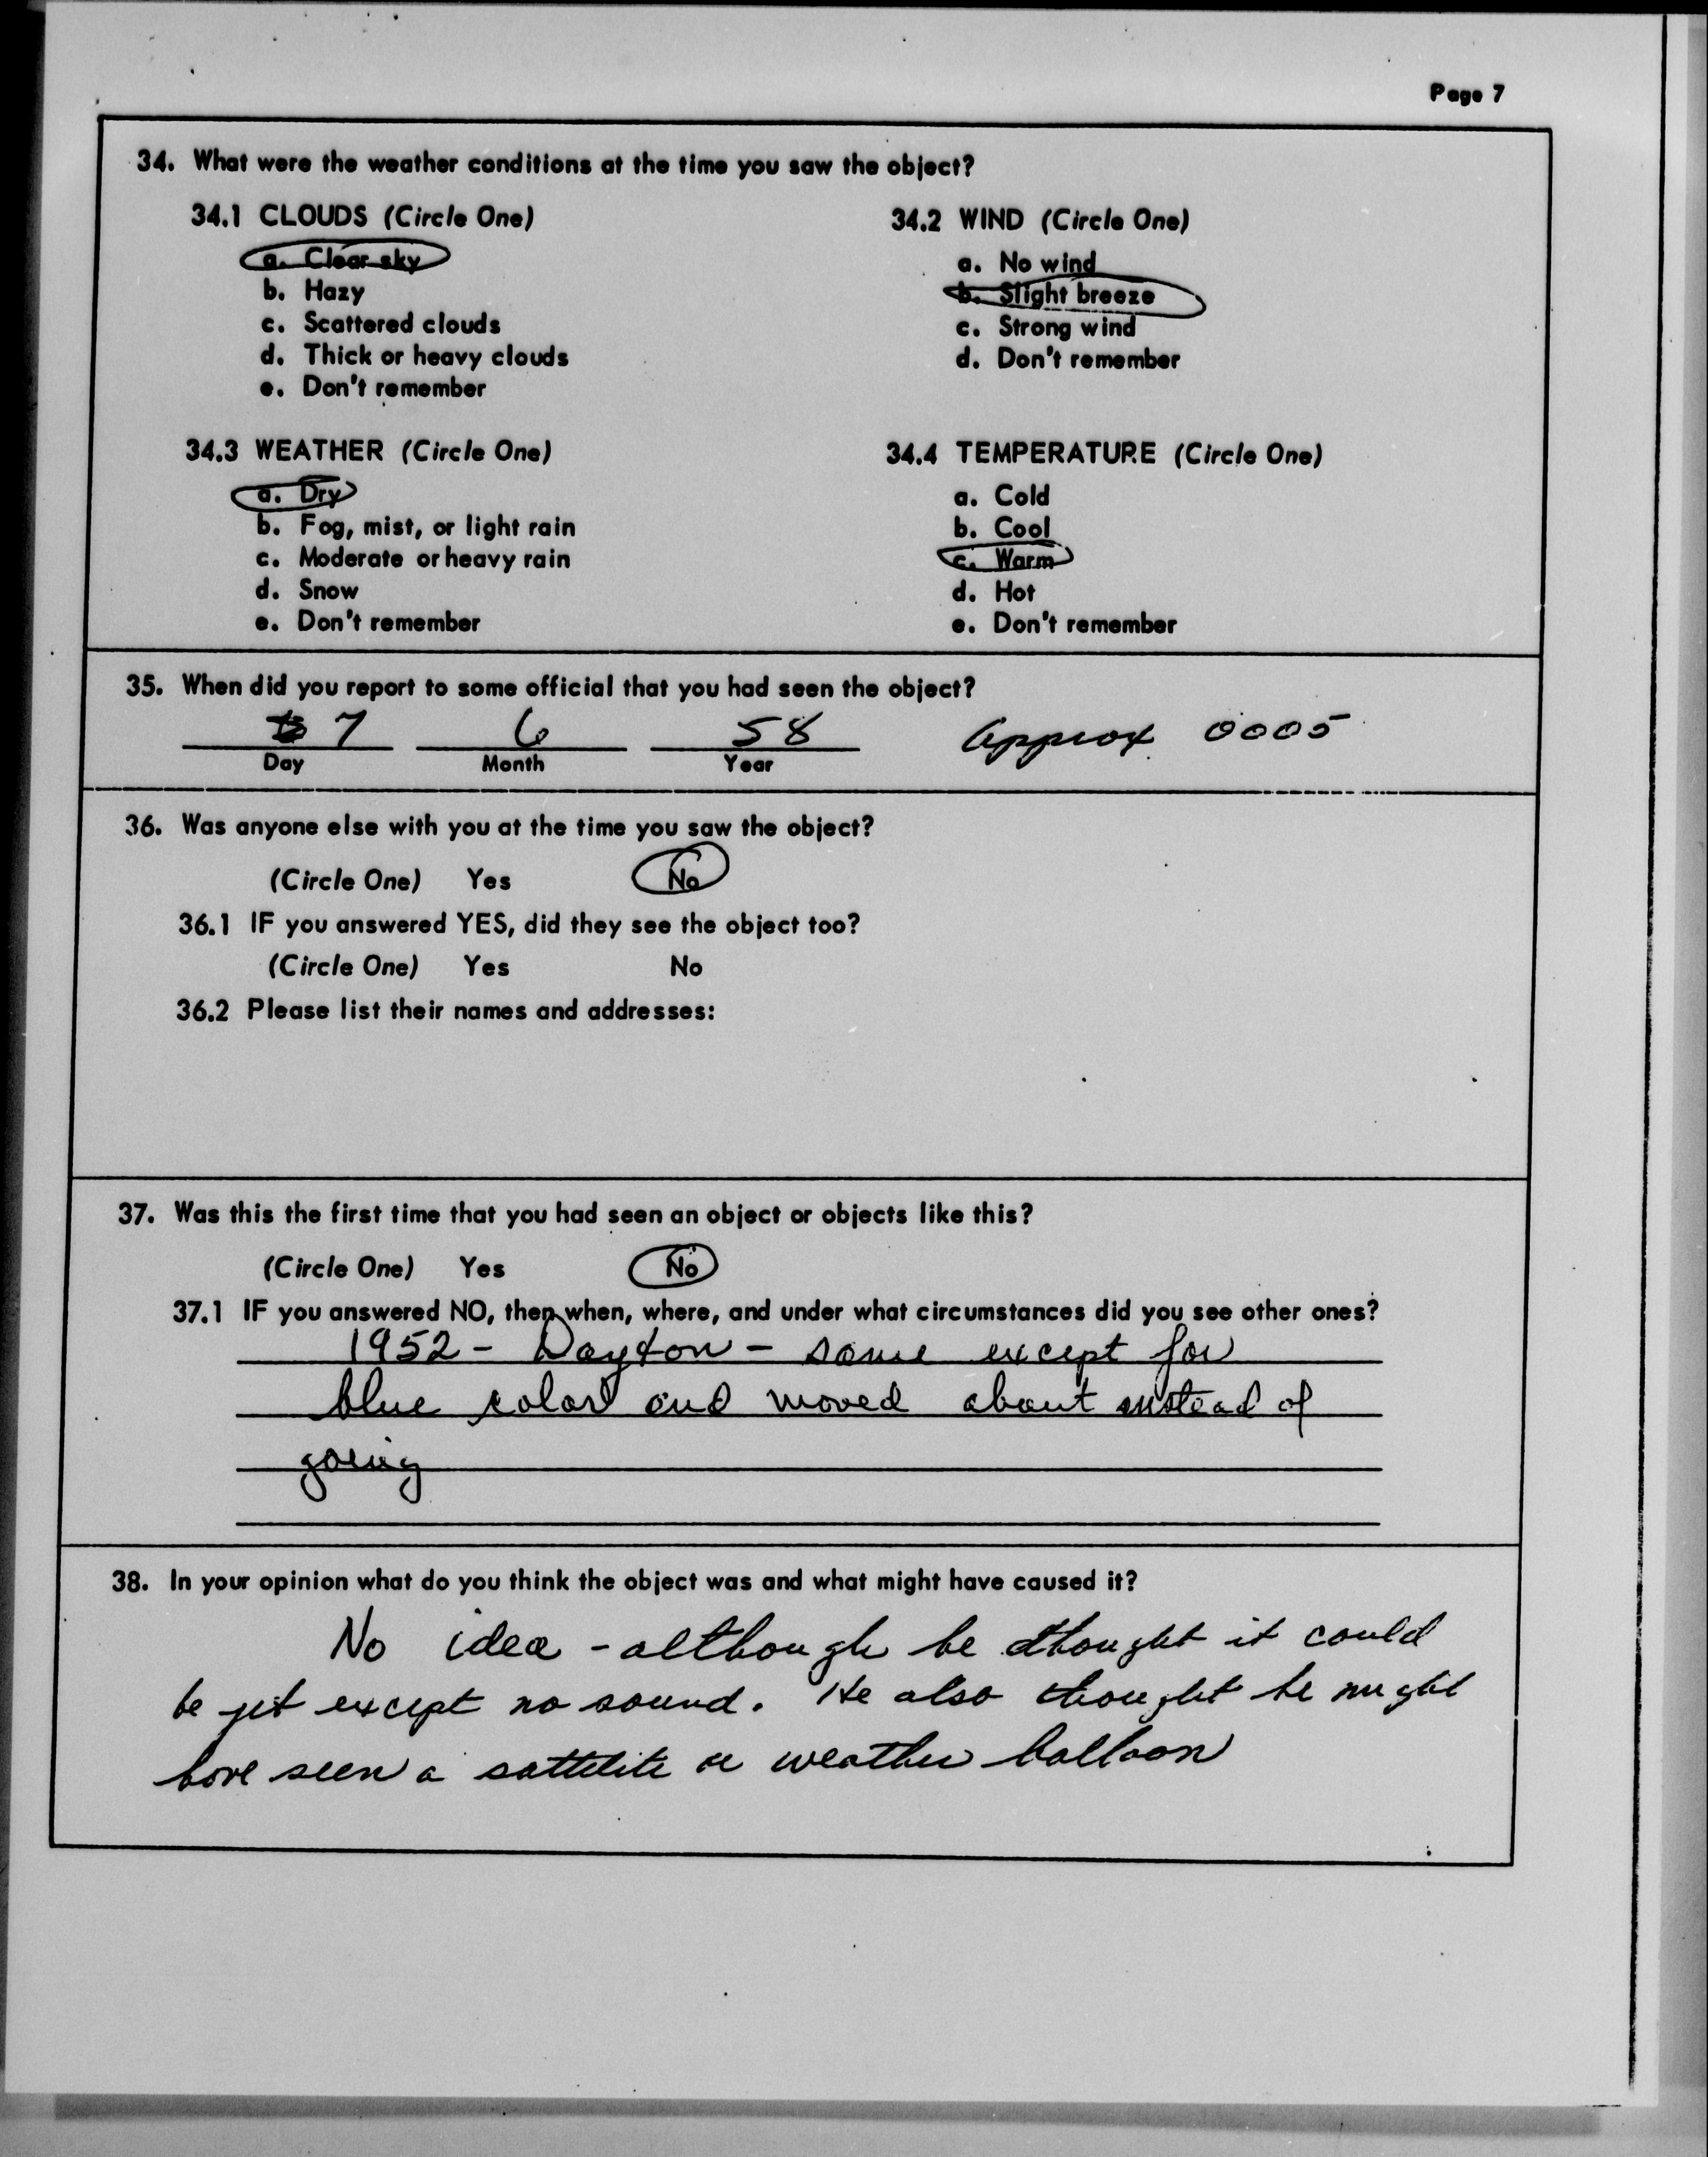 Page 7
34. What were the weather conditions at the time you saw the object?
34.1 CLOUDS (Circle One)
a. Clear sky
b. Hazy
c. Scattered clouds
d. Thick or heavy clouds
e. Don't remember
34.2 WIND (Circle One)
a. No wind
b. Slight breeze
c. Strong wind
d. Don't remember
34.3 WEATHER (Circle One)
a. Dry
b. Fog, mist, or light rain
c. Moderate or heavy rain
d. Snow
e. Don't remember
34.4 TEMPERATURE (Circle One)
a. Cold
b. Cool
c. Warm
d. Hot
e. Don't remember
35. When did you report to some official that you had seen the object?
7 6 58 Approx 0005
Day Month Year
36. Was anyone else with you at the time you saw the object?
(Circle One) Yes No
36.1 IF you answered YES, did they see the object too?
(Circle One) Yes No
36.2 Please list their names and addresses:
37. Was this the first time that you had seen an object or objects like this?
(Circle One) Yes No
37.1 IF you answered NO, then when, where, and under what circumstances did you see other ones?
1952 - Dayton - same except for
blue color and moved about instead of
going
38. In your opinion what do you think the object was and what might have caused it?
No idea - although he thought it could
be jet except no sound. He also thought he might
have seen a sattelite or weather balloon